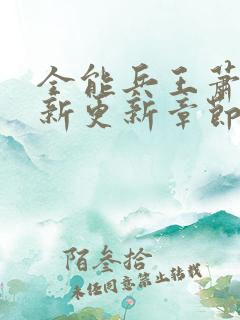 全能兵王萧
新更新章节
陌叁拾
未经同意禁止转载